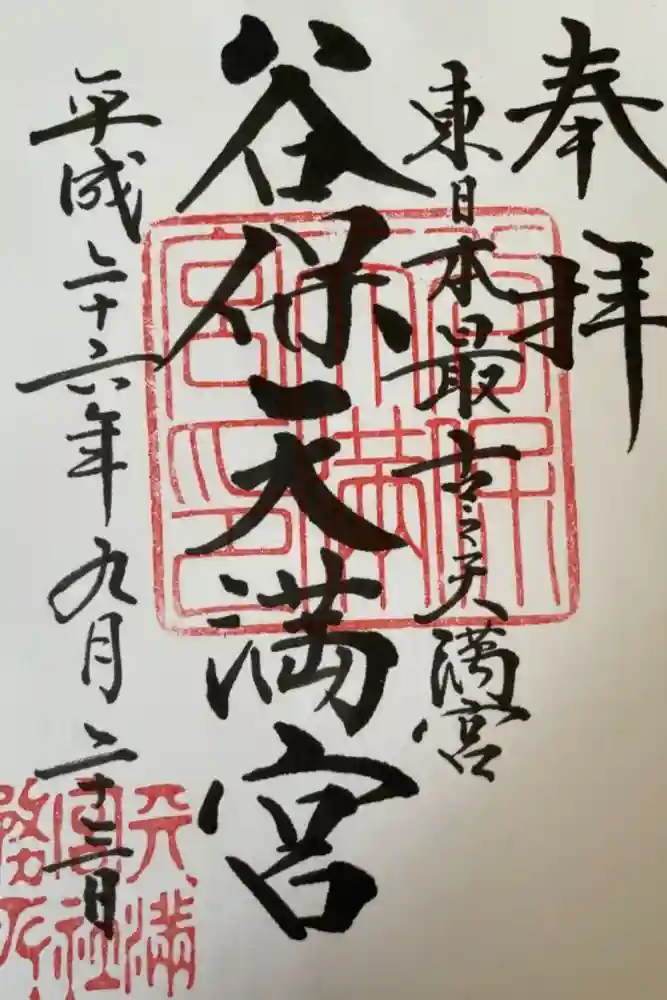 奉拝
東日本最古之天満宮
谷保天満宮
平成二十六年九月二十三日
谷保
天満
宮印
天満
宮社
務所